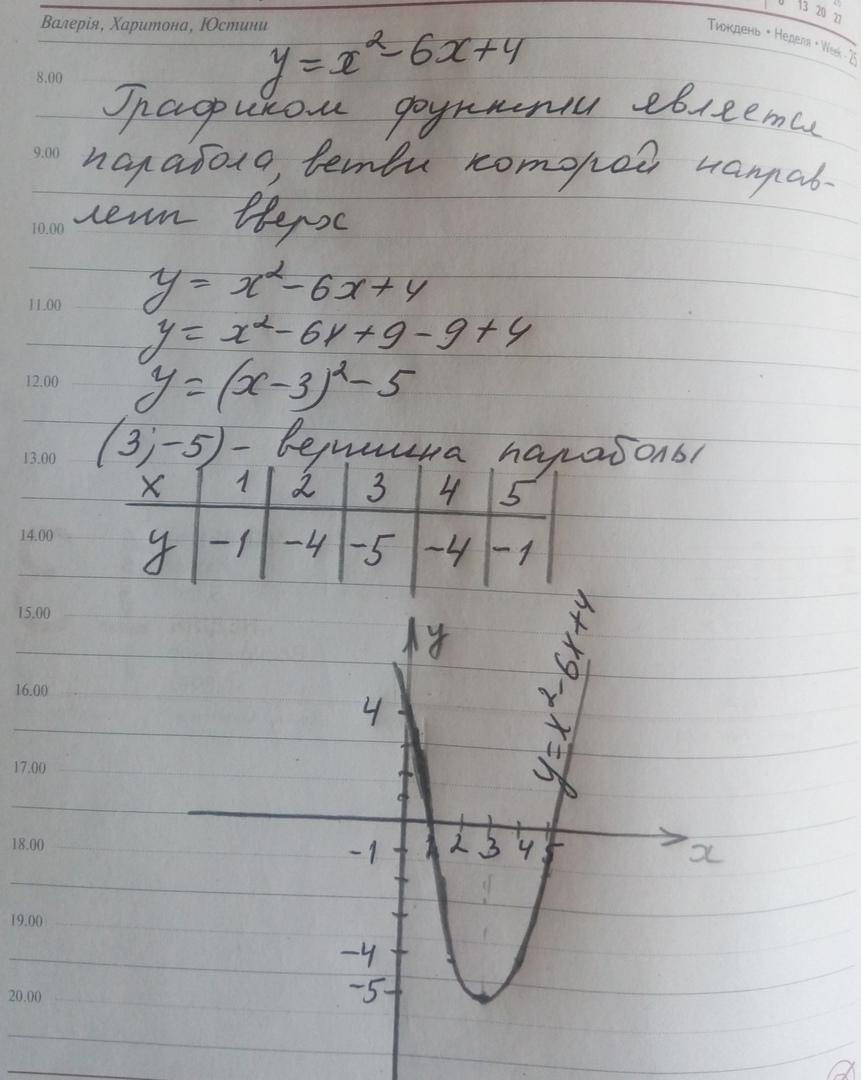 Валерія, Харитона, Юстини
13 20 27
Тиждень • Неделя • Week - 25
y = x² - 6x + 4
8.00
Графиком функции является
9.00
парабола, ветви которой направ-
10.00
лены вверх
y = x² - 6x + 4
11.00
y = x² - 6x + 9 - 9 + 4
12.00
y = (x - 3)² - 5
13.00
(3; -5) - вершина параболы
x 1 2 3 4 5
14.00
y -1 -4 -5 -4 -1
15.00
y
y = x² - 6x + 4
16.00
4
17.00
18.00
-1 1 2 3 4 5 x
19.00
-4
-5
20.00